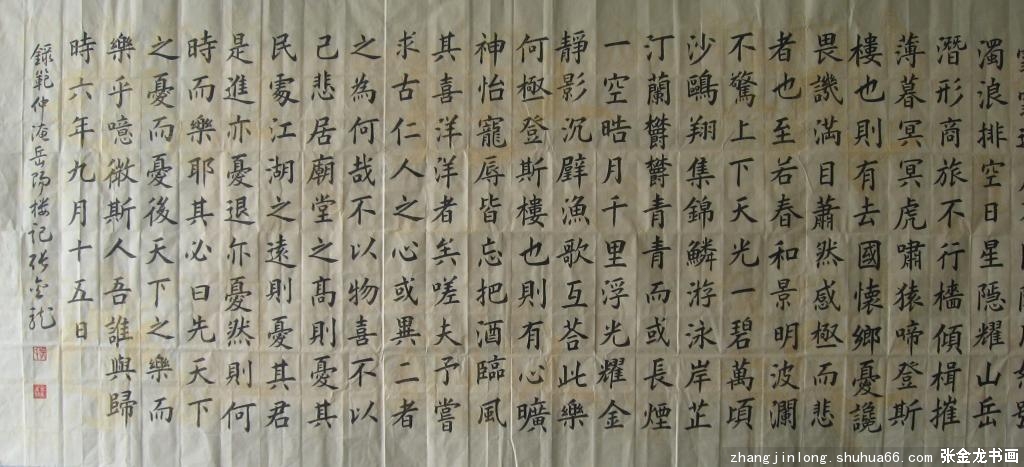 濁浪排空日星隱耀山岳
潛形商旅不行檣傾楫摧
薄暮冥冥虎嘯猿啼登斯
樓也則有去國懷鄉憂讒
畏譏滿目蕭然感極而悲
者也至若春和景明波瀾
不驚上下天光一碧萬頃
沙鷗翔集錦鱗游泳岸芷
汀蘭欝欝青青而或長煙
一空皓月千里浮光耀金
靜影沉璧漁歌互荅此樂
何極登斯樓也則有心曠
神怡寵辱皆忘把酒臨風
其喜洋洋者矣嗟夫予嘗
求古仁人之心或異二者
之為何哉不以物喜不以
己悲居廟堂之高則憂其
民處江湖之遠則憂其君
是進亦憂退亦憂然則何
時而樂耶其必曰先天下
之憂而憂後天下之樂而
樂乎噫微斯人吾誰與歸
時六年九月十五日
錄範仲淹岳陽楼记张金龙
zhangjinlong.shuhua66.com 张金龙书画